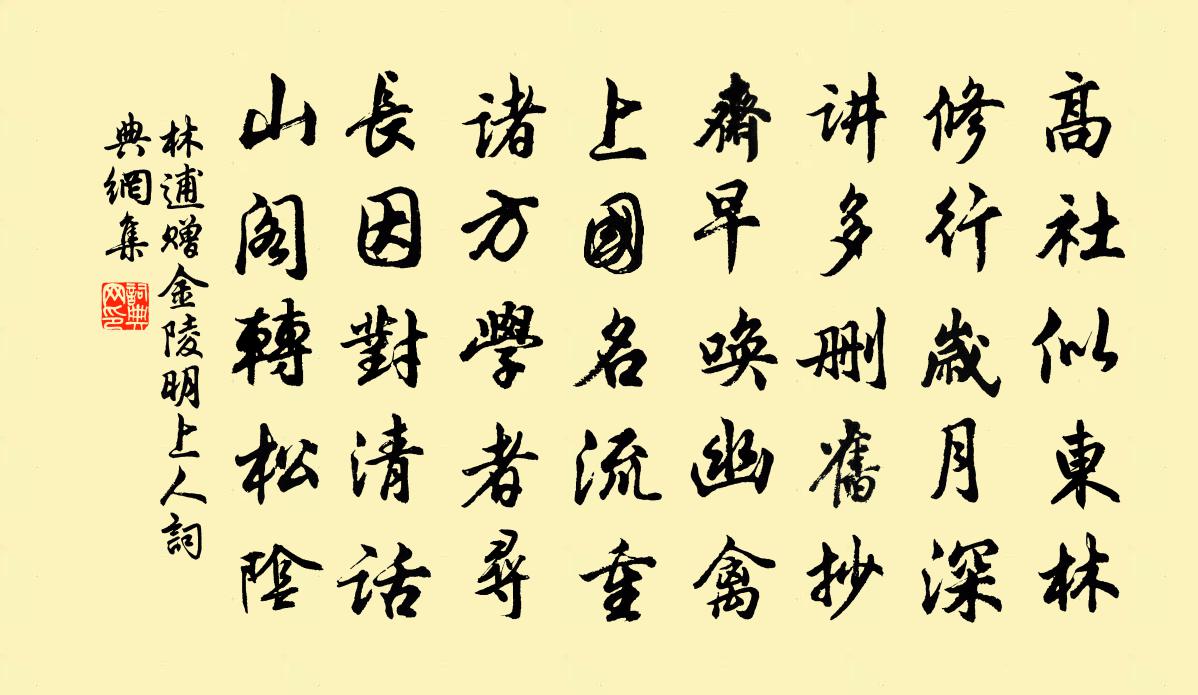 高社似東林
修行歲月深
讲多刪舊抄
齋早喚幽禽
上國名流重
诸方學者尋
長因對清話
山阁轉松陰
林逋贈金陵明上人詞
典網集
詞典
网印